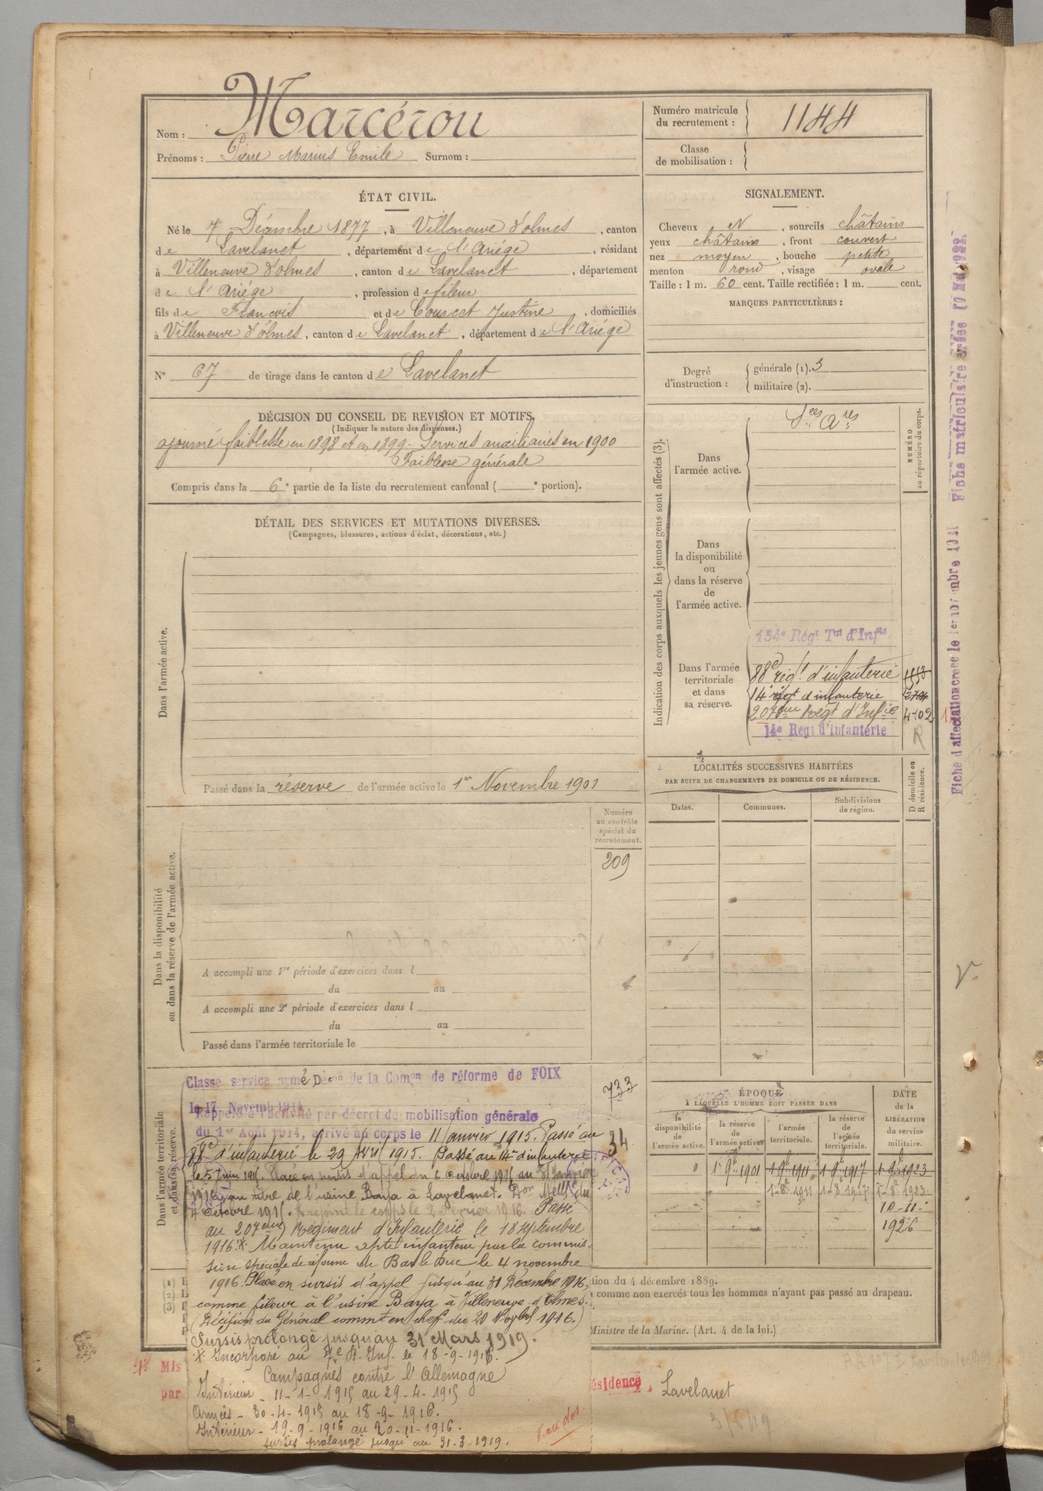 Nom : Marcérou
Prénoms : Pierre Marius Emile Surnom :
Numéro matricule du recrutement : 1144
Classe de mobilisation :
ÉTAT CIVIL.
Né le 7 Décembre 1877, à Villeneuve d'olmes, canton
de Lavelanet, département de l'Ariége, résidant
à Villeneuve d'olmes, canton de Lavelanet, département
de l'Ariége, profession de fileur
fils de François et de Courcet Justine, domiciliés
à Villeneuve d'olmes, canton de Lavelanet, département de l'Ariége
N° 67 de tirage dans le canton de Lavelanet
SIGNALEMENT.
Cheveux N, sourcils châtains
yeux châtains, front couvert
nez moyen, bouche petite
menton rond, visage ovale
Taille : 1 m. 60 cent. Taille rectifiée : 1 m. cent.
MARQUES PARTICULIÈRES :
Degré d'instruction : générale (1). 3
militaire (2).
DÉCISION DU CONSEIL DE REVISION ET MOTIFS.
(Indiquer la nature des dispenses.)
ajourné faiblesse en 1898 et en 1899. Services auxiliaires en 1900
Faiblesse générale
Compris dans la 6e partie de la liste du recrutement cantonal ( e portion).
DÉTAIL DES SERVICES ET MUTATIONS DIVERSES.
(Campagnes, blessures, actions d'éclat, décorations, etc.)
Dans l'armée active.
Passé dans la réserve de l'armée active le 1er Novembre 1901
Indication des corps auxquels les jeunes gens sont affectés (3).
NUMÉRO au répertoire du corps.
Dans l'armée active.
Sces Ares
Dans la disponibilité ou dans la réserve de l'armée active.
Dans l'armée territoriale et dans sa réserve.
134e Régt Tal d'Infie
88e régt d'infanterie
14e régt d'infanterie
207eme Regt d'Infie 4102
14e Regt d'Infanterie R
LOCALITÉS SUCCESSIVES HABITÉES
PAR SUITE DE CHANGEMENTS DE DOMICILE OU DE RÉSIDENCE.
Dates. Communes. Subdivisions de région.
D domicile ou R résidence.
Numéro au contrôle spécial du recrutement.
209
Dans la disponibilité ou dans la réserve de l'armée active.
A accompli une 1re période d'exercices dans l
du au
A accompli une 2e période d'exercices dans l
du au
Passé dans l'armée territoriale le
Dans l'armée territoriale et dans sa réserve.
Classé service armé Décon de la Comon de réforme de FOIX
le 17 Novemb 1914
Rappelé à l'activité par décret de mobilisation générale
du 1er Août 1914, arrivé au corps le 11 janvier 1915. Passé au
88e d'infanterie le 29 Avril 1915. Passé au 14e d'infanterie
le 5 Juin 1915. Placé en sursis d'appel du 6 octobre 1915 au 31 Janvier
1916 au titre de l'usine Baya à Lavelanet. Don Melle du
4 octobre 1915. Rejoint le corps le 2 février 1916. Passé
au 207eme Régiment d'Infanterie le 18 septembre
1916 * Maintenu apte infanterie par la commis-
sion spéciale de réforme de Bar le Duc le 4 novembre
1916. Placé en sursis d'appel jusqu'au 31 Décembre 1916,
comme fileur à l'usine Baya à Villeneuve d'Olmes.
(Décision du Général commt en chef du 20 Novbre 1916.)
Sursis prolongé jusqu'au 31 Mars 1919.
* Incorporé au R. Inf. le 18-9-1916.
Campagnes contre l'Allemagne
Intérieur - 11-1-1915 au 29-4-1915
Armées - 30-4-1915 au 18-9-1916.
Intérieur - 19-9-1916 au 20-11-1916.
sursis prolongé jusqu'au 31-3-1919.
V. au dos
733
34
ÉPOQUE
À LAQUELLE L'HOMME DOIT PASSER DANS
la disponibilité de l'armée active. la réserve de l'armée active. l'armée territoriale. la réserve de l'armée territoriale.
DATE de la LIBÉRATION du service militaire.
1-9bre 1901 1-9bre 1911 1-9bre 1917 1-9bre 1923
1-8-1911 1-8-1917 1-8-1923
10-11-1926
tion du 4 décembre 1889.
comme non exercés tous les hommes n'ayant pas passé au drapeau.
Ministre de la Marine. (Art. 4 de la loi.)
Mis
par
ésidence, Lavelanet
Fiche d'affectation créée le 1er novembre 1921
Fiche matriculaire créée